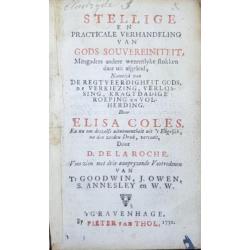 STELLIGE
EN
PRACTICALE VERHANDELING
VAN
GODS SOUVEREINITEIT,
Mitsgaders andere wezentlyke stukken
daar uit afgeleid,
Namelyk van
DE REGTVEERDIGHEIT GODS,
DE VERKIEZING, VERLOS-
SING, KRAGTDADIGE
ROEPING en VOL-
HERDING.
Door
ELISA COLES,
En nu om deszelfs uitnementheit uit 't Engelsch,
na den Druk, vertaalt,
Door
D. DE LA ROCHE.
Voorzien met drie aanpryzende Voorredenen
VAN
T. GOODWIN, J. OWEN,
S. ANNESLEY en W. W.
'sGRAVENHAGE,
By PIETER VAN THOL,